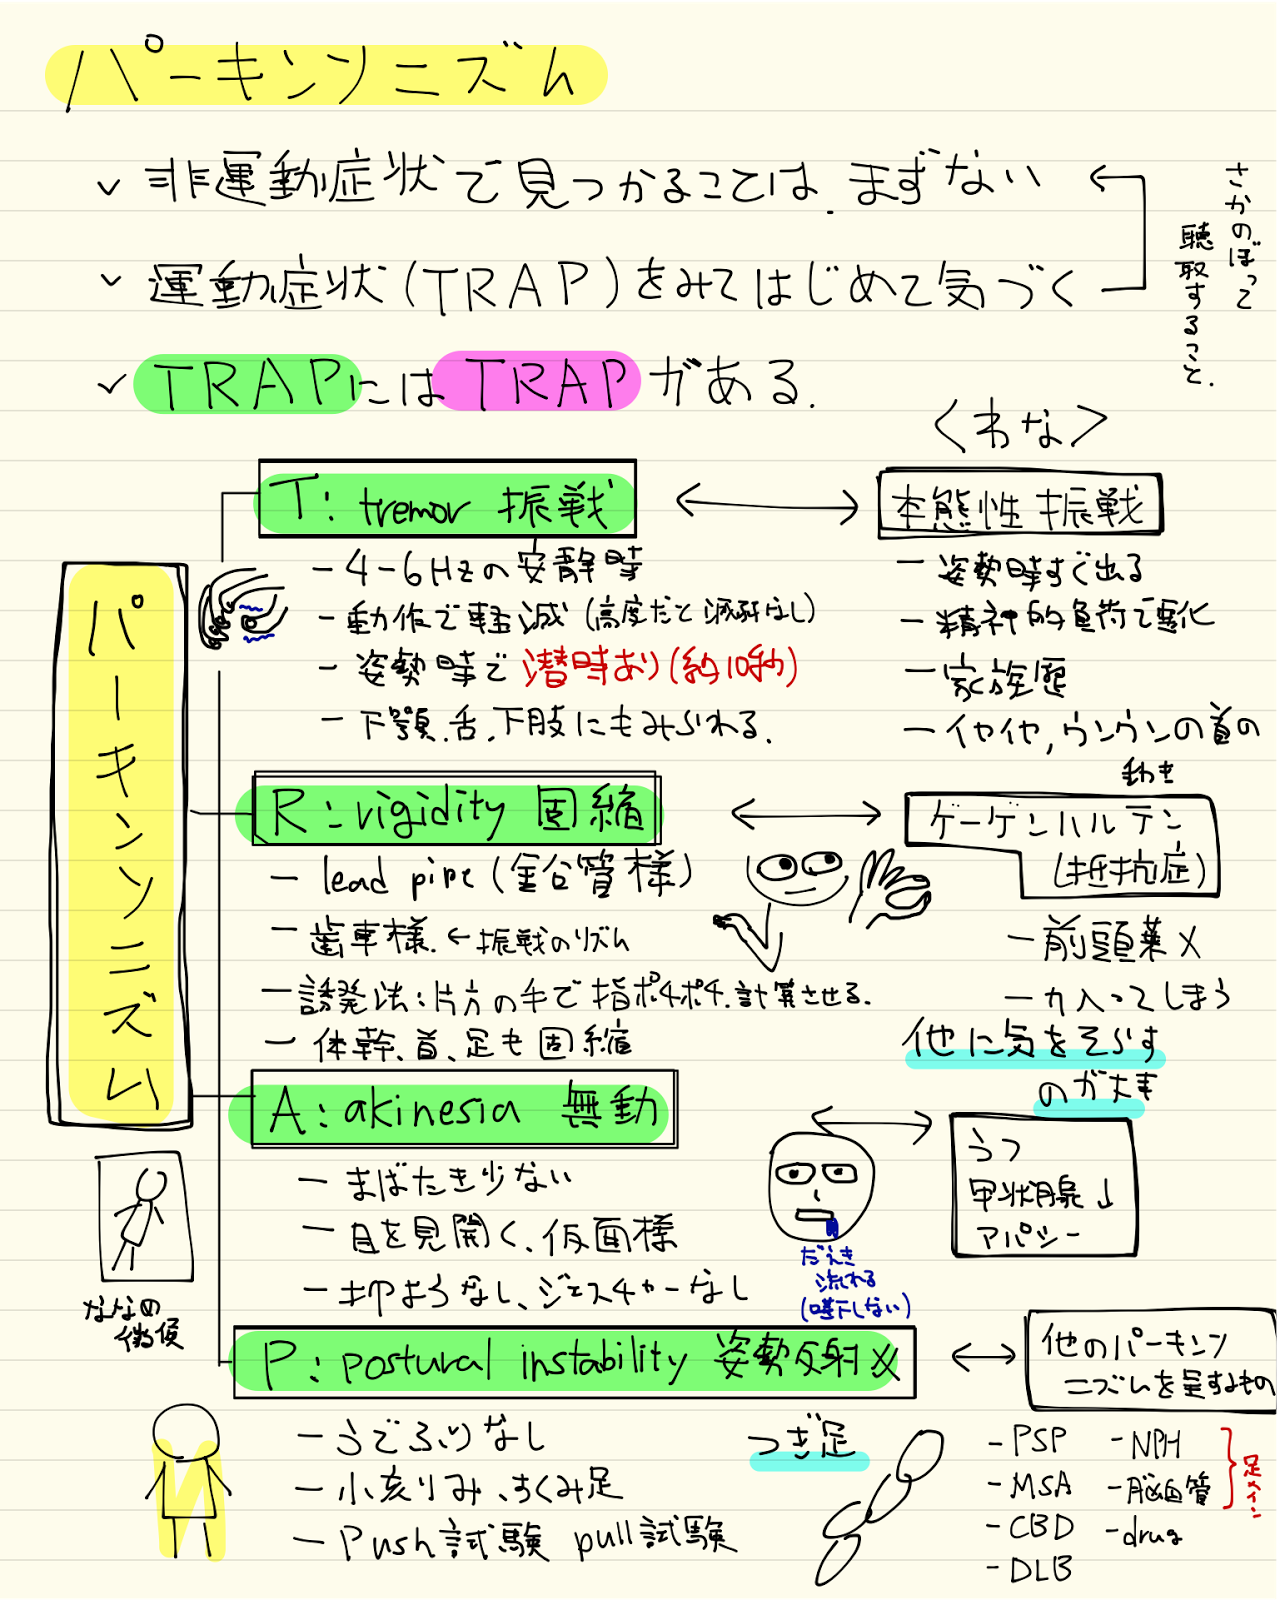 パーキンソニズム
非運動症状で見つかることは、まずない
運動症状(TRAP)をみてはじめて気づく
さかのぼって
聴取すること.
TRAPには TRAPがある.
<わな>
T: tremor 振戦
本態性振戦
- 4-6Hzの安静時
- 動作で軽減 (高度だと減弱なし)
- 姿勢時で 潜時あり (約10秒)
- 下顎.舌.下肢にもみられる.
- 姿勢時すぐ出る
- 精神的負荷で悪化
- 家族歴
- イヤイヤ,ウンウンの首の
動き
パーキンソニズム
R: rigidity 固縮
ゲーゲンハルテン
(抵抗症)
- lead pipe (鉛管様)
- 歯車様. ← 振戦のリズム
- 誘発法: 片方の手で 指ポチポチ. 計算させる.
- 体幹、首、足も 固縮
- 前頭葉 ×
- 力入ってしまう
他に気をそらす
のが大事
A: akinesia 無動
うつ
甲状腺↓
アパシー
- まばたき少ない
- 目を見開く、仮面様
- 抑ようなし、ジェスチャーなし
だえき
流れる
(嚥下しない)
ななめ
徴候
P: postural instability 姿勢反射×
他のパーキン
ニズムを呈するもの
- うでふりなし
- 小刻み、すくみ足
- Push試験 pull試験
つぎ足
- PSP
- MSA
- CBD
- DLB
- NPH
- 脳血管
- drug
足メイン